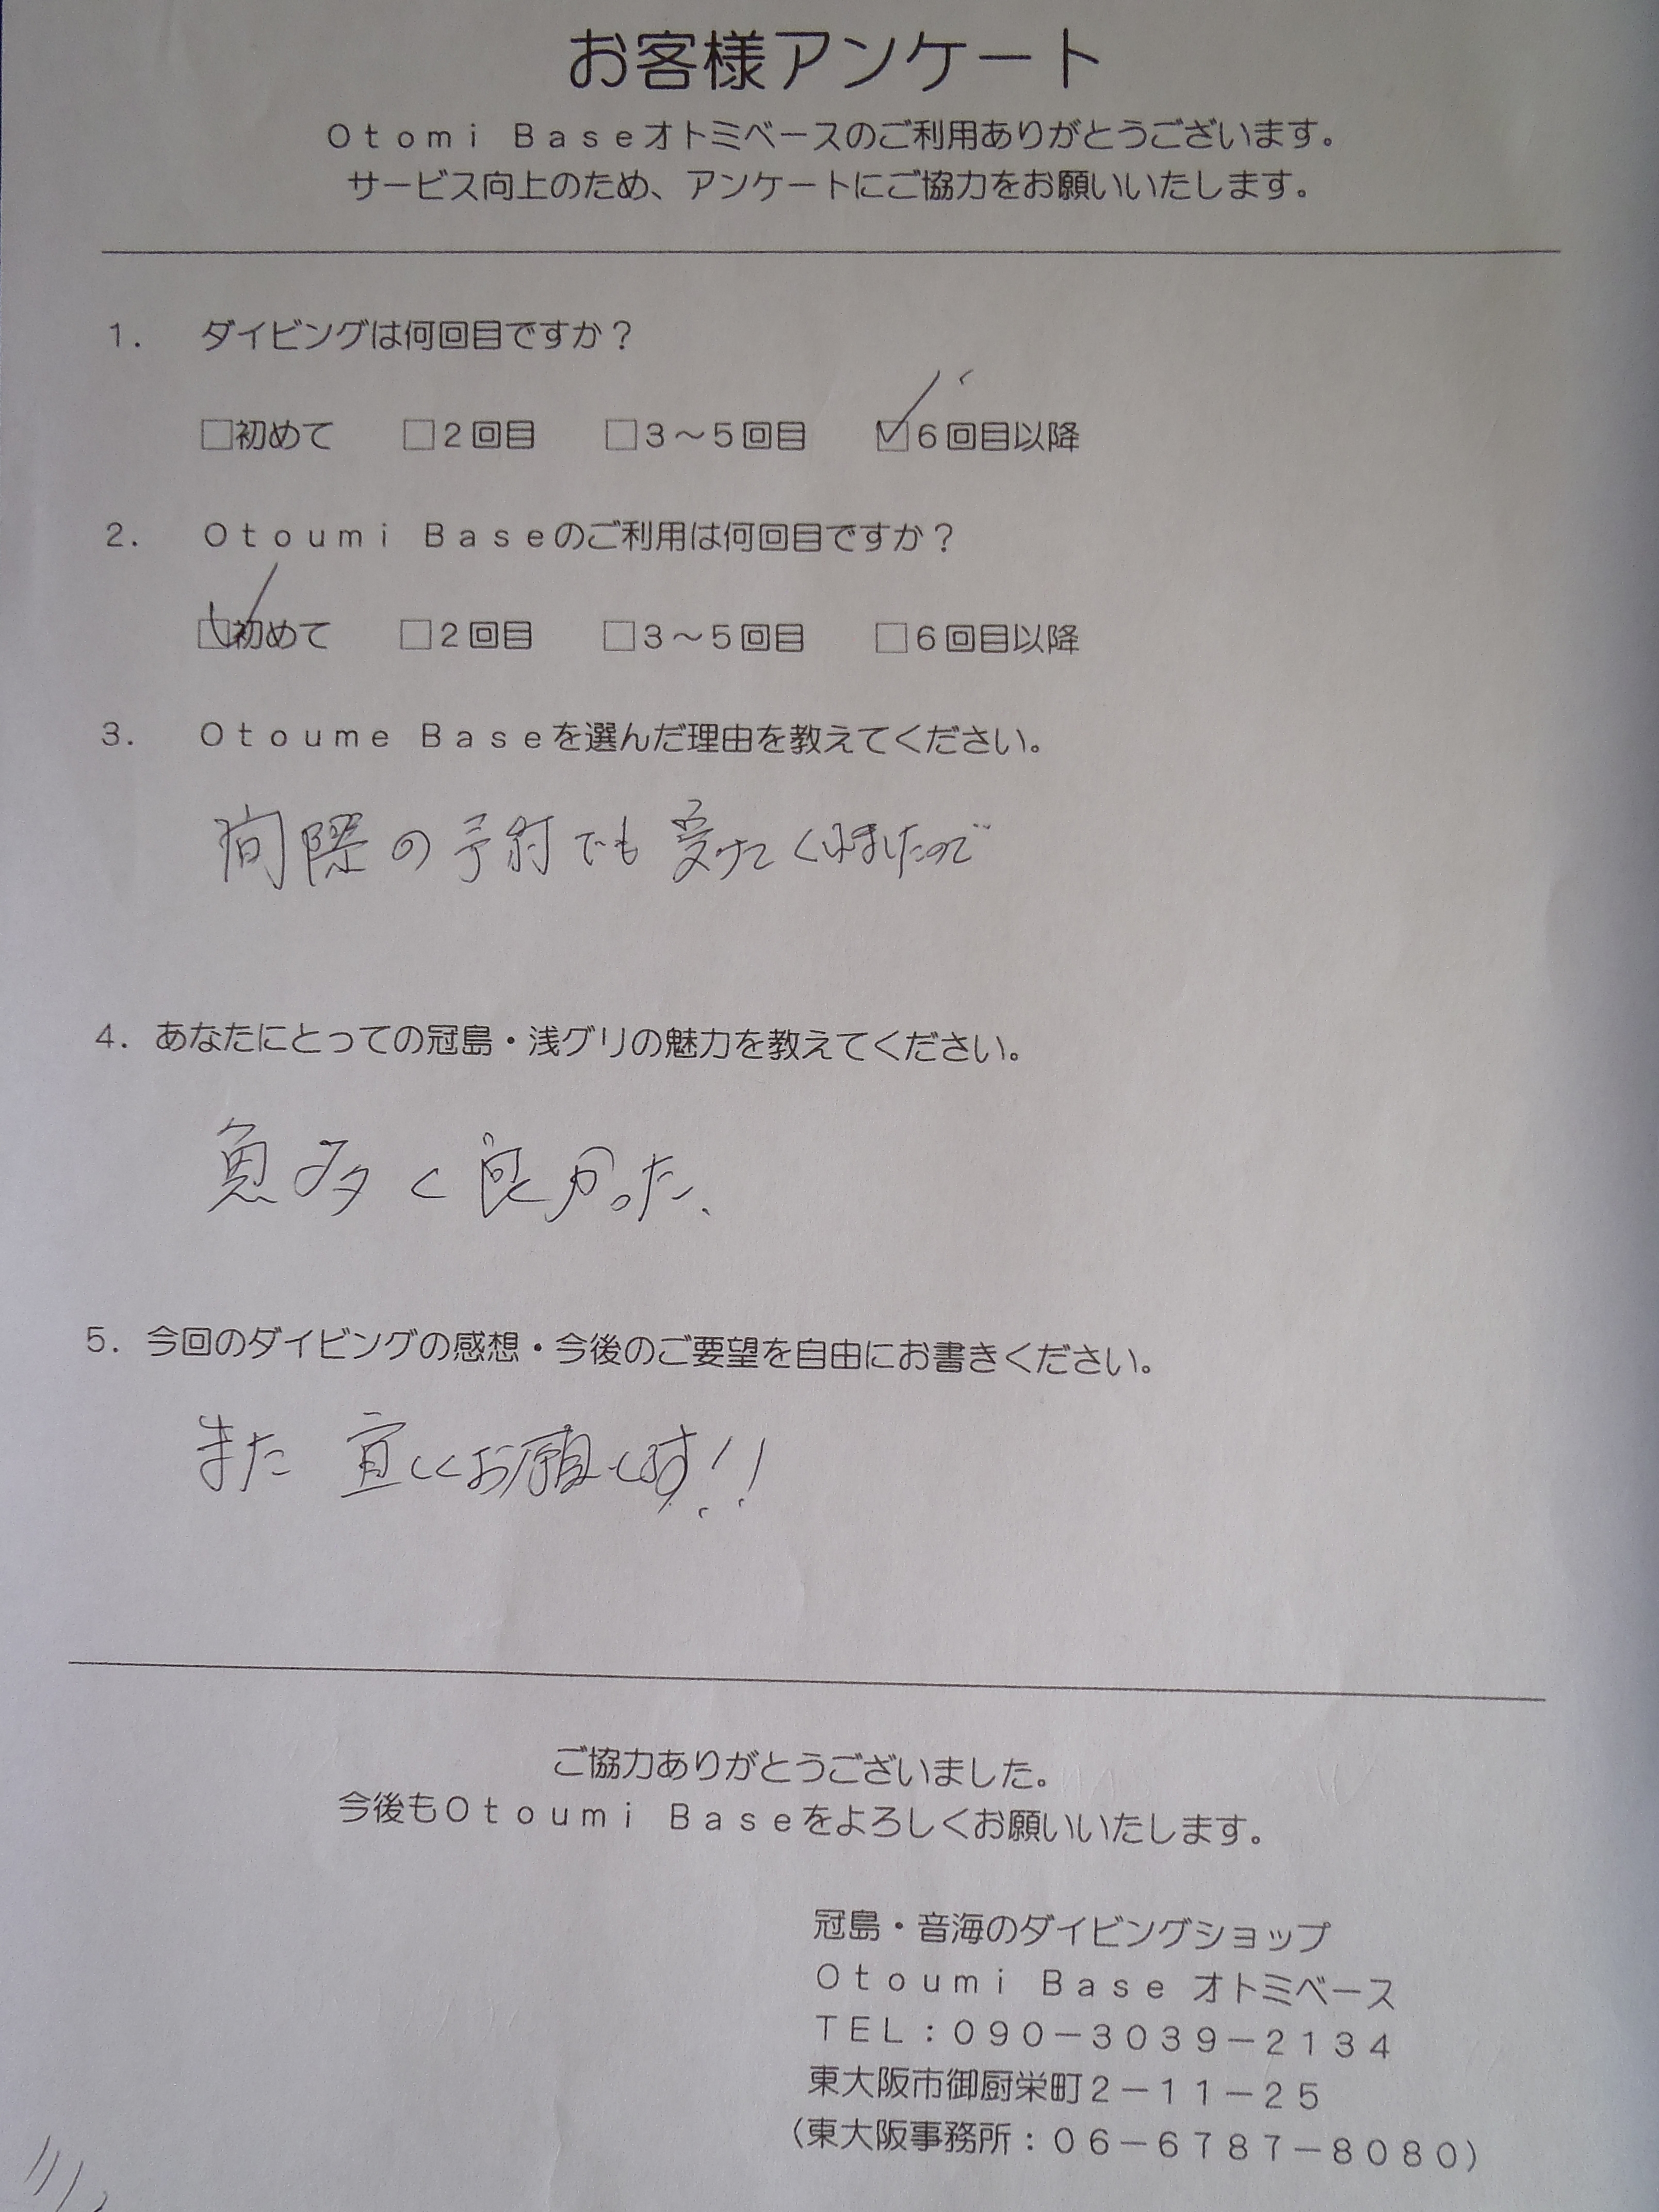 お客様アンケート
Otomi Baseオトミベースのご利用ありがとうございます。
サービス向上のため、アンケートにご協力をお願いいたします。
1. ダイビングは何回目ですか？
□初めて □2回目 □3～5回目 ☑6回目以降
2. Otoumi Baseのご利用は何回目ですか？
☑初めて □2回目 □3～5回目 □6回目以降
3. Otoume Baseを選んだ理由を教えてください。
間際の予約でも受けてくれましたので
4. あなたにとっての冠島・浅グリの魅力を教えてください。
魚多く良かった、
5. 今回のダイビングの感想・今後のご要望を自由にお書きください。
また宜しくお願いします！！
ご協力ありがとうございました。
今後もOtoumi Baseをよろしくお願いいたします。
冠島・音海のダイビングショップ
Otoumi Base オトミベース
TEL：090－3039－2134
東大阪市御厨栄町2－11－25
（東大阪事務所：06－6787－8080）